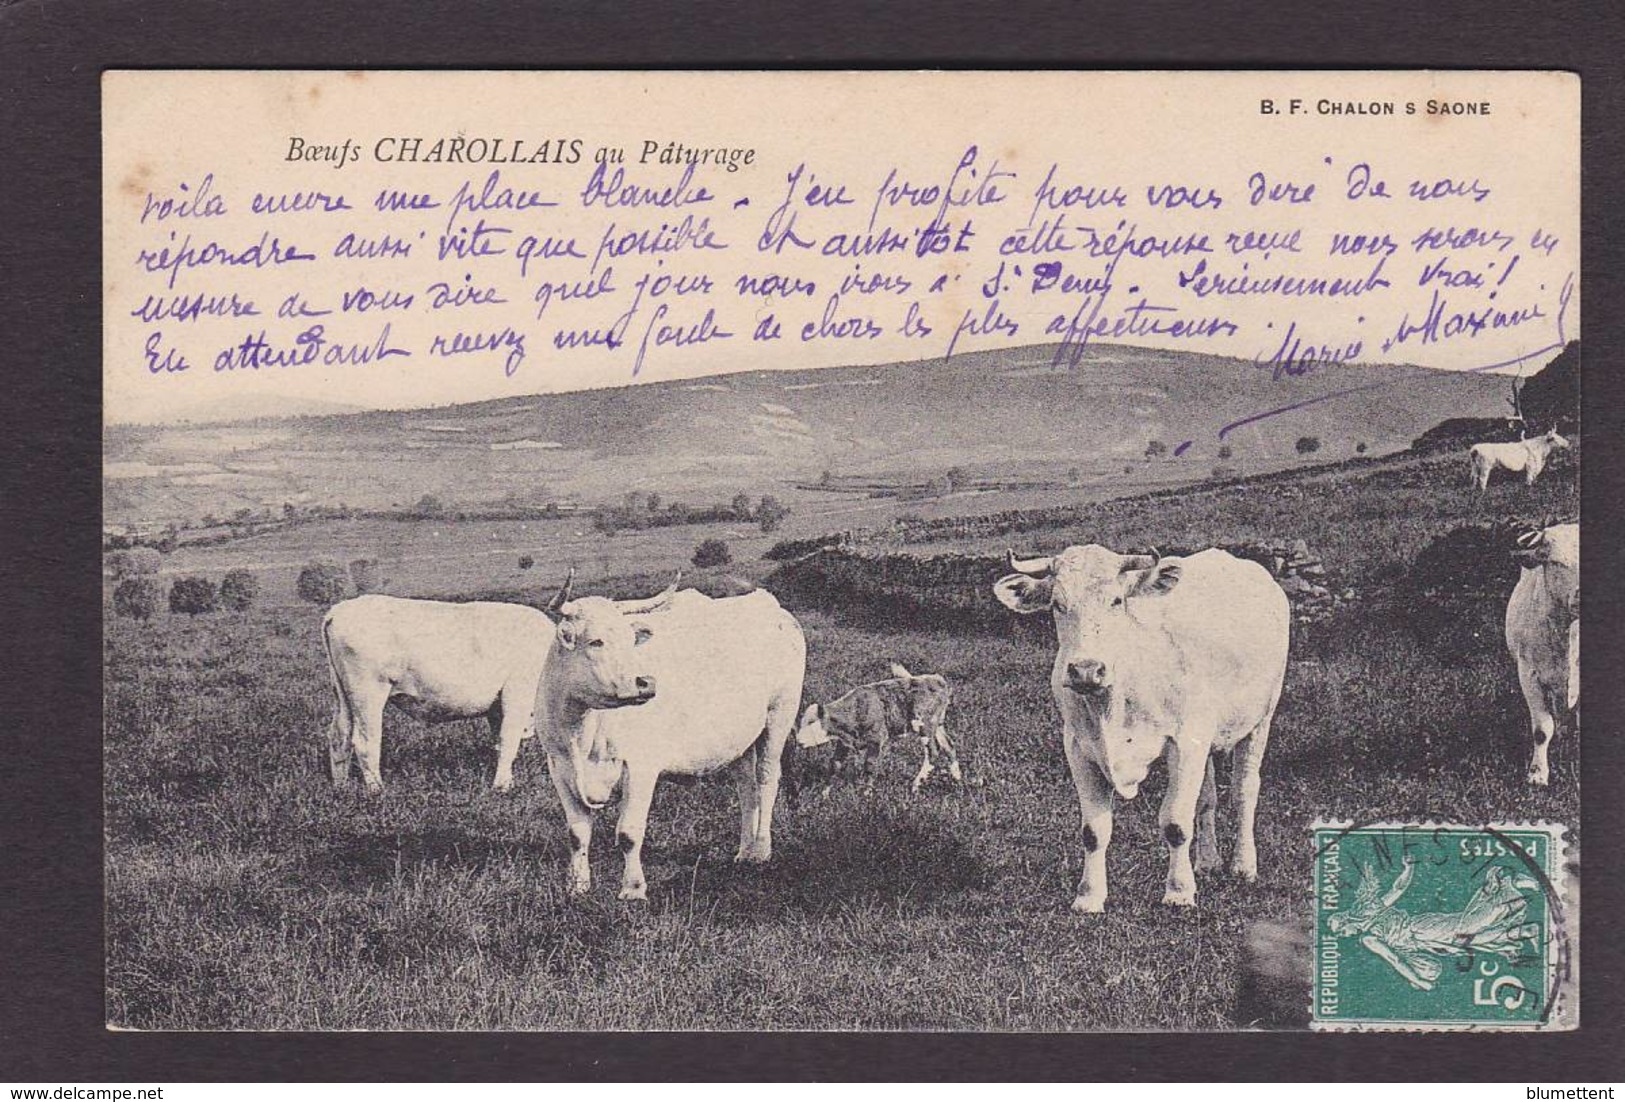 B. F. CHALON S SAONE
Bœufs CHAROLLAIS au Pâturage
Voilà encore une place blanche. J'en profite pour vous dire de nous
répondre aussi vite que possible et aussitôt cette réponse reçue nous serons en
mesure de vous dire quel jour nous irons à St Denis. Serieusement vrai!
En attendant recevez une foule de choses les plus affectueuses.
Marie Maxime
POSTES
RÉPUBLIQUE FRANÇAISE
5c
3
blumettent